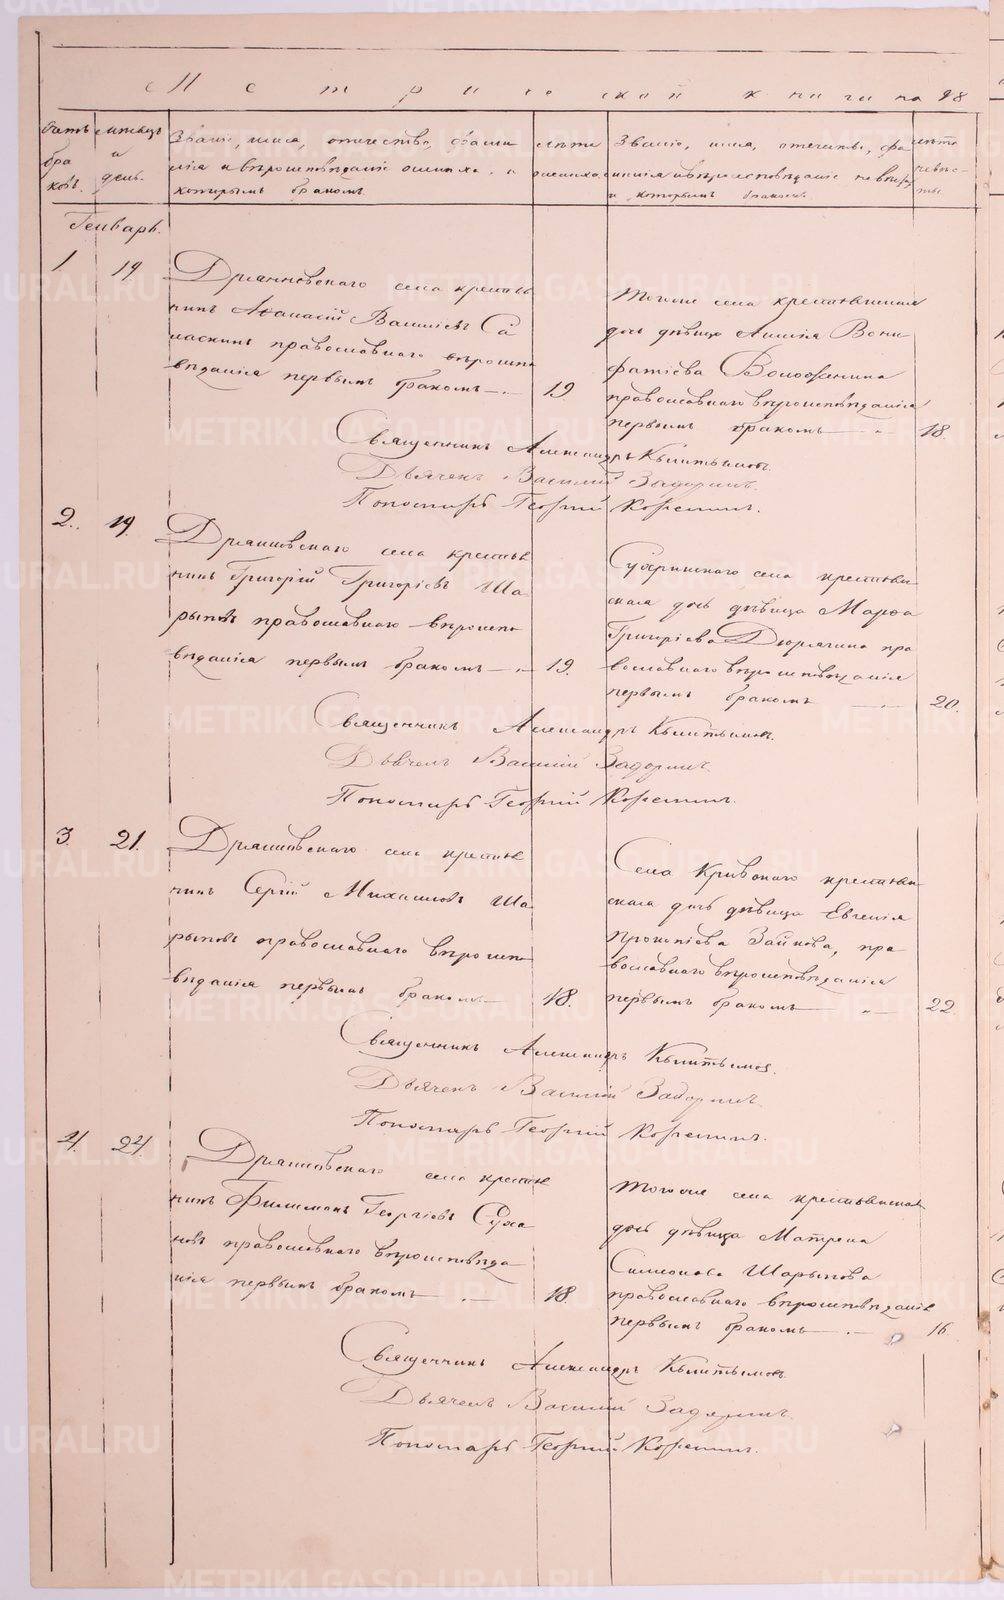 Метрической книги на 98
Счетъ браковъ.
мѣсяцъ и день.
Званіе, имя, отчество, фами
лія и вѣроисповѣданіе жениха, и
которымъ бракомъ
лѣта жениха
Званіе, имя, отчество, фа
милія и вѣроисповѣданіе невѣсты
и которымъ бракомъ.
лѣта невѣсты
Генварь.
1 19
крестья
нинъ Афанасій Василіевъ Са
ласкинъ православнаго вѣроиспо
вѣданія первымъ бракомъ 19
Тогоже села крестьянская
дочь дѣвица Вони
фатіева
православнаго вѣроисповѣданія
первымъ бракомъ 18.
Священникъ Александръ
Дьячекъ Василій Задоринъ.
Пономарь Георгій
2. 19.
села крестья
нинъ Григорій Григоріевъ Ша
рыповъ православнаго вѣроиспо
вѣданія первымъ бракомъ 19.
села крестьян
ская дочь дѣвица Марфа
Григоріева Дюрягина пра
вославнаго вѣроисповѣданія
первымъ бракомъ 20.
Священникъ Александръ
Дьячекъ Василій Задоринъ.
Пономарь Георгій
3. 21.
села крестья
нинъ Сергій Михаиловъ Ша
рыповъ православнаго вѣроиспо
вѣданія первымъ бракомъ 18.
Села Кривскаго крестьян
ская дочь дѣвица Евгенія
Прокопіева Зайкова, пра
вославнаго вѣроисповѣданія
первымъ бракомъ 22.
Священникъ Александръ
Дьячекъ Василій Задоринъ.
Пономарь Георгій
4. 24.
села крестья
нинъ Филимонъ Георгіевъ Суха
новъ православнаго вѣроисповѣда
нія первымъ бракомъ 18.
Тогоже села крестьянская
дочь дѣвица Матрена
Симеонова Шарыпова
православнаго вѣроисповѣданія
первымъ бракомъ 16.
Священникъ Александръ
Дьячекъ Василій Задоринъ.
Пономарь Георгій
METRIKI.GASO-URAL.RU